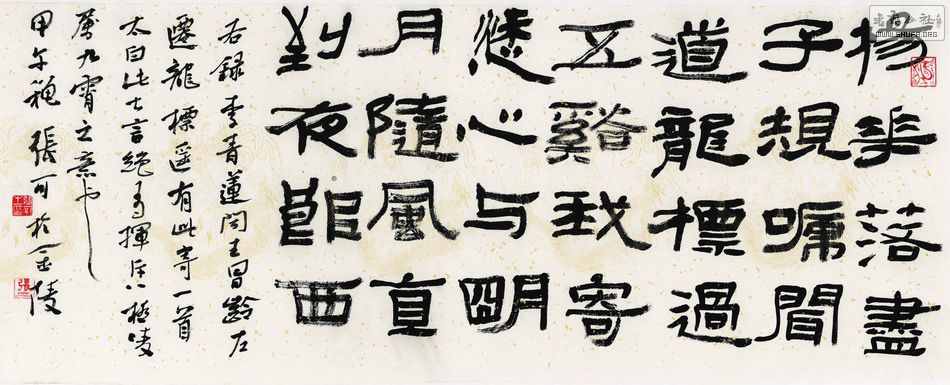 楊花落盡
子規啼聞
道龍標過
五谿我寄
愁心与明
月隨風直
到夜郎西
右錄李青蓮聞王昌齡左
遷龍標遥有此寄一首
太白此七言絕有揮斥八極凌
厲九霄之意也
甲午穐張可於金陵
張
書法公社
WWW.SHUFA.ORG